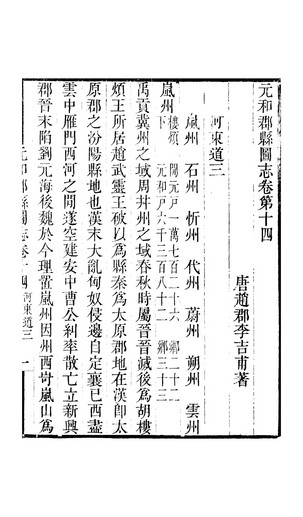 元和郡縣圖志卷第十四
唐趙郡李吉甫著
河東道三
嵐州 石州 忻州 代州 蔚州 朔州 雲州
嵐州
樓煩 開元戶一萬七百二十六 鄉二十二
下 元和戶六千三百八十二 鄉三十三
禹貢冀州之域周并州之域春秋時屬晉晉滅後爲胡樓
煩王所居趙武靈王破以爲縣秦爲太原郡地在漢即太
原郡之汾陽縣地也漢末大亂匈奴侵邊自定襄已西盡
雲中雁門西河之間遂空建安中曹公糾率散亡立新興
郡晉末陷劉元海後魏於今理置嵐州因州西岢嵐山爲
元和郡縣圖志卷十四 河東道三 一